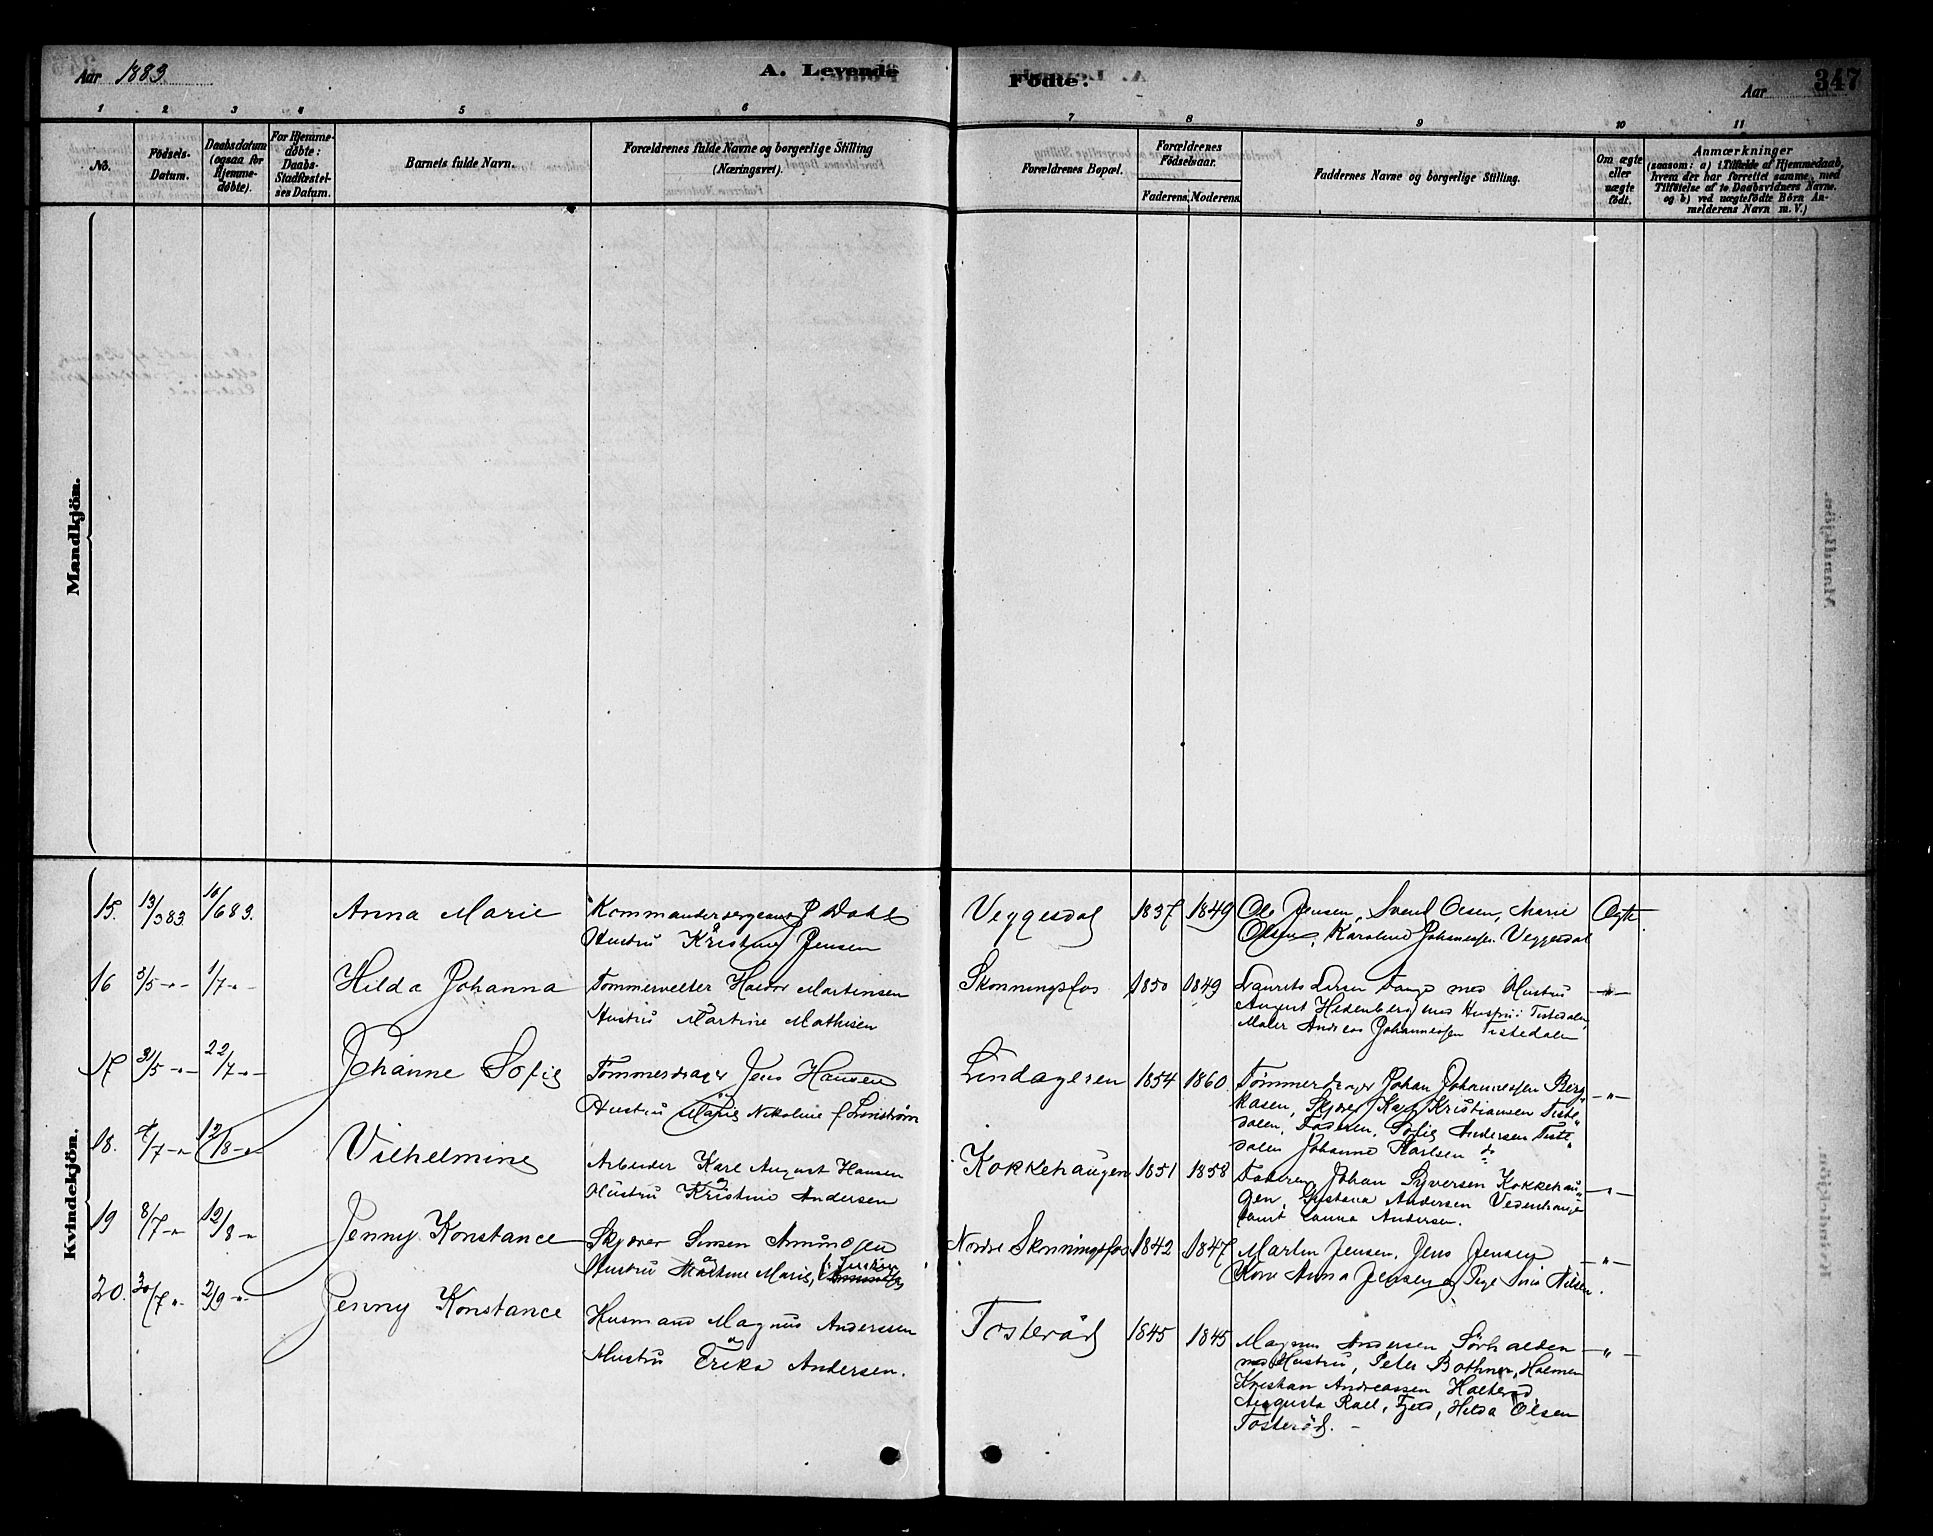 Aar 1883
A. Levende
Födte.
Aar
347
1 2 3 4 5 6 7 8 9 10 11
No.
Födsels-
Datum.
Daabsdatum
(ogsaa for
Hjemme-
döbte).
For Hjemme-
döbte:
Daabs-
Stadfæstel-
ses Datum.
Barnets fulde Navn.
Forældrenes fulde Navne og borgerlige Stilling
(Næringsvei).
Forældrenes Bopæl.
Forældrenes
Födselsaar.
Faderens. Moderens.
Faddernes Navne og borgerlige Stilling.
Om ægte
eller
uægte
födt.
Anmærkninger
(saasom: a) i Tilfælde af Hjemmedaab,
hvem der har forrettet samme, med
Tilföielse af to Daabsvidners Navne.
og b) ved uægtefödte Börn An-
melderens Navn m. V.)
Mandkjön.
Kvindekjön.
15. 13/3 83. 10/6 83. Anna Marie
Kommandersergeant J Dahl
Hustru Kristine Jensen
Veggesdal 1837 1849
Ole Jensen, Svend Olsen, Marie
Olsen, Karoline Johannesen Veggesdal
Ægte
16 3/5 -"- 1/7 -"- Hilda Johanna
Tømmervelter Halvor Martinsen
Hustru Martine Mathisen
Skonningsfos 1850 1849
Laurits Larsen Tange med Hustru
August Hedenberg med Hustru Tistedalen,
Maler Andreas Johannesen Tistedalen
-"-
17 31/5 -"- 22/7 -"- Johanne Sofie
Tømmerdrager Jens Hansen
Hustru Marie Nikoline f Lindstrøm
Lindageren 1854 1860
Tømmerdrager Johan Johannessen Berg-
kasen, Skjærer Karl Kristiansen Tiste-
dalen, Faderen, Sofie Andersen Tiste-
dalen Johanne Karlsen do
-"-
18. 4/7 -"- 12/8 -"- Vilhelmine
Arbeider Karl August Hansen
Hustru Kristine Andersen
Kokkehaugen 1851 1858
Faderen, Johan Syversen Kokkehau-
gen, Gustava Andersen Vedenhauge
samt Launa Andersen.
-"-
19 8/7 -"- 12/8 -"- Jenny Konstance
Skjærer Simen Amundsen
Hustru Mathine Marie,
Nordre Skonningsfos 1842 1847
Martin Jensen, Jens Jensen
Kone Anna Jensen og Pige Lina Nilsen.
-"-
20. 30/7 "- 2/9 -"- Jenny Konstance
Husmand Magnus Anderssen
Hustru Erika Andersen.
Tosterød 1845 1845
Magnus Andersen Sørhalden
med Hustru, Peter Bothner, Holmen
Kristian Andreassen Holterød
Augusta Roll, Fjeld, Hilda Olsen
Tosterød. -
-"-